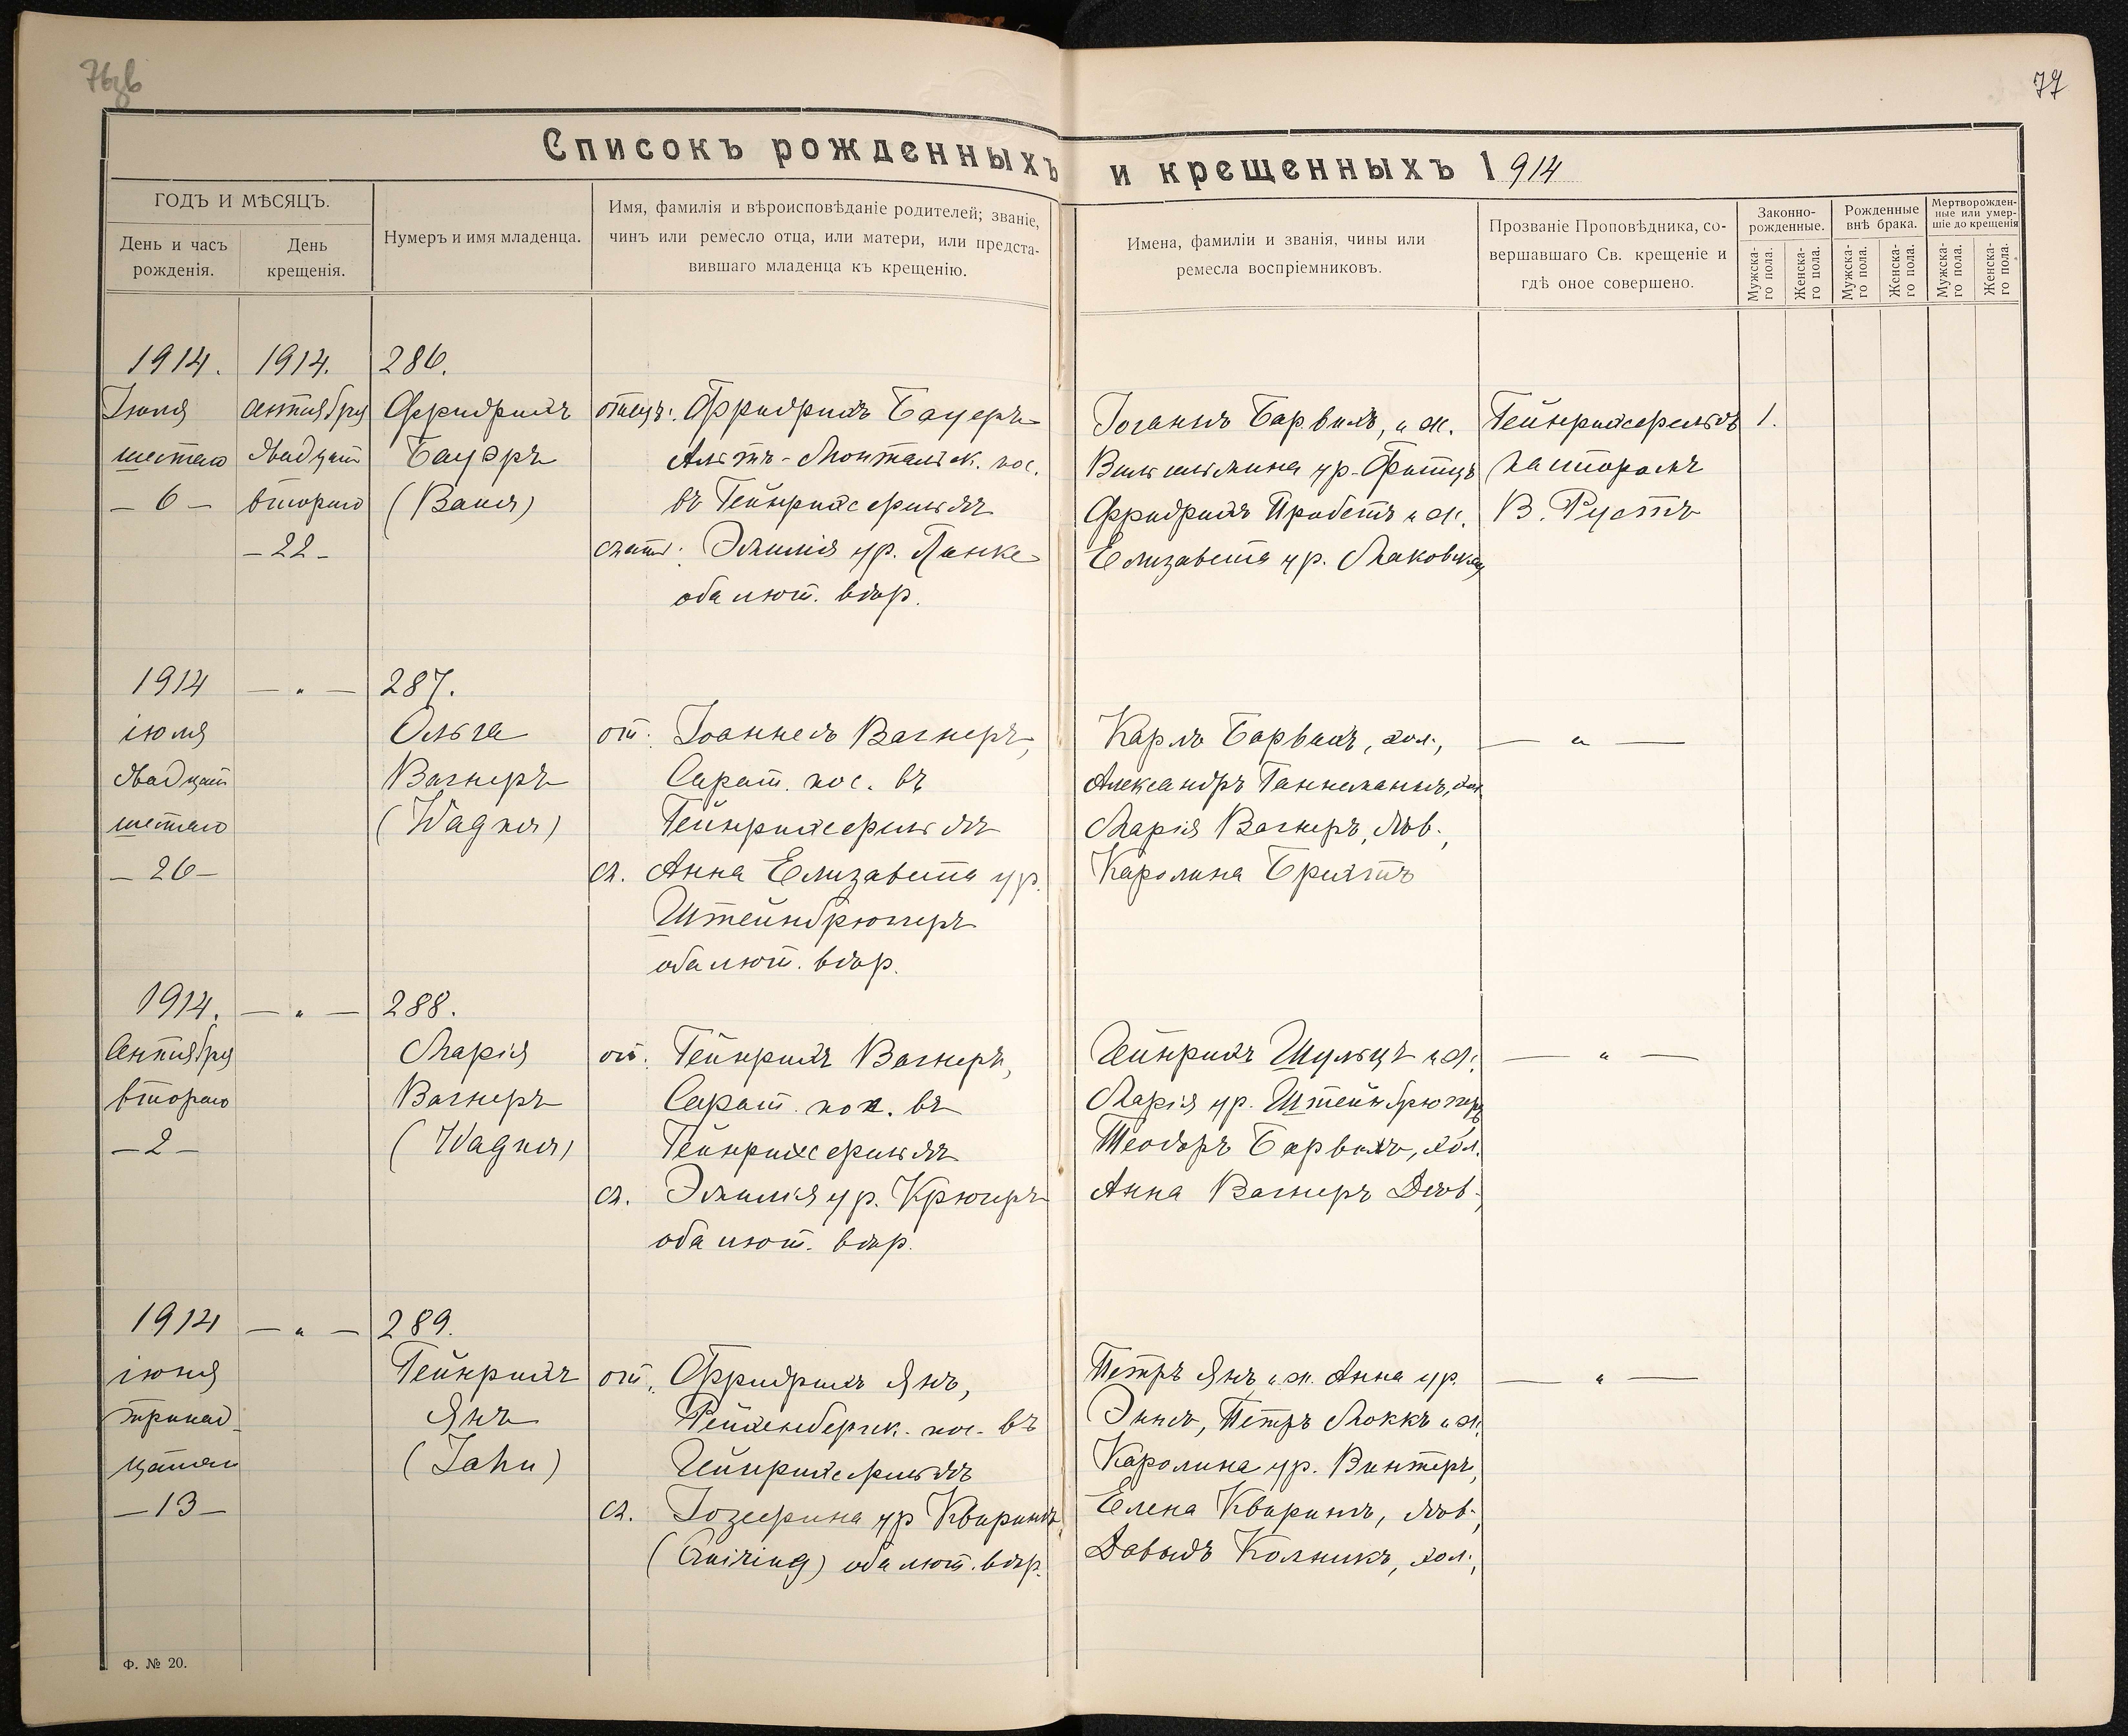 76об
77
Списокъ рожденныхъ и крещенныхъ 1914
ГОДЪ И МѢСЯЦЪ.
День и часъ рожденія.
День крещенія.
Нумеръ и имя младенца.
Имя, фамилія и вѣроисповѣданіе родителей; званіе,
чинъ или ремесло отца, или матери, или предста-
вившаго младенца къ крещенію.
Имена, фамиліи и званія, чины или
ремесла воспріемниковъ.
Прозваніе Проповѣдника, со-
вершавшаго Св. крещеніе и
гдѣ оное совершено.
Законно-
рожденные.
Рожденные
внѣ брака.
Мертворожден-
ные или умер-
шіе до крещенія
Мужска-
го пола.
Женска-
го пола.
Мужска-
го пола.
Женска-
го пола.
Мужска-
го пола.
Женска-
го пола.
1914.
Іюля
шестаго
— 6 —
1914.
сентября
двадцать
второго
— 22 —
286.
Фридрихъ
Бауэръ
отецъ: Фридрихъ Бауеръ
Альтъ-Монтальск. пос.
въ Гейнрихсфельдѣ
мать: Эмилія ур. Панке
оба лют. вѣр.
Іоганнъ Барвихъ, и ж.
Вильгельмина ур. Фитцъ
Фридрихъ Пробстъ и ж.
Елизавета ур. Маковская
Гейнрихсфельдъ
пасторомъ
В. Рустъ
1.
1914
іюля
двадцать
шестаго
— 26 —
— „ —
287.
Ольга
Вагнеръ
(Wagner)
от: Іоаннесъ Вагнеръ,
Сарат. пос. въ
Гейнрихсфельдѣ
м. Анна Елизавета ур.
Штейнбрюггеръ
оба лют. вѣр.
Карлъ Барвихъ, хол.,
Александръ Ганнеманнъ, хол.
Марія Вагнеръ, дѣв.,
Каролина Брихтъ
— „ —
1914.
Сентября
второго
— 2 —
— „ —
288.
Марія
Вагнеръ
(Wagner)
от. Гейнрихъ Вагнеръ,
Сарат. пос. въ
Гейнрихсфельдѣ
м. Эмилія ур. Крюгеръ
оба лют. вѣр.
Гейнрихъ Шульцъ и ж.
Марія ур. Штейнбрюггеръ
Теодоръ Барвихъ, хол.
Анна Вагнеръ Дѣв.,
— „ —
1914
іюня
тринад-
цатаго
— 13 —
— „ —
289.
Гейнрихъ
Янъ
(Jahn)
от. Фридрихъ Янъ,
Рейхенбергск. пос. въ
Гейнрихсфельдѣ
м. Іозефина ур Квирингъ
(Quiring) оба лют. вѣр.
Петръ Янъ и ж. Анна ур.
Эннсъ, Петръ Моккъ и ж.
Каролина ур. Винтеръ,
Елена Квирингъ, дѣв.,
Давыдъ Кольникъ, хол.,
— „ —
Ф. № 20.